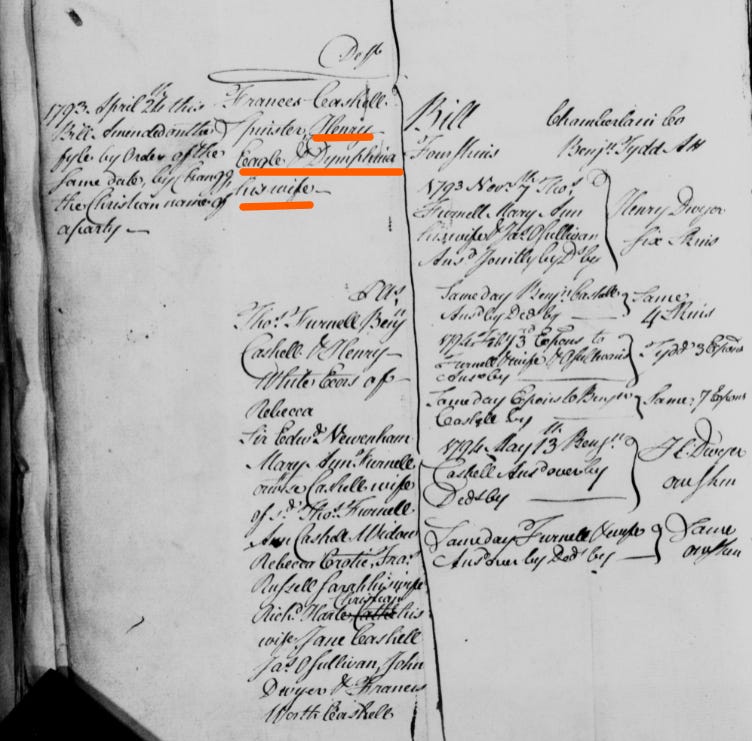 Deft
1793. April 26th this
Bill Amended on the
fyle by Order of the
same date, by Chang.g
the Christian name of
a party —
Frances Caskell
Spinster, Henry
Eeagle & Dymphinia
his wife —
Bill
Four Skins
Chamberlain Co
Benjn. Tydd Att
1793 Novr. 7th Thos.
Furnell Mary Ann
his wife & Jas. OSullivan
Ansd. Jointly by Ds. by
Henry Dwyer
Six Skins
Same day Benjn. Caskell
Ans by Ded by —
Same
4 Skins
1794 3d Expons to
Furnell & wife & OSullivan's
Ans by —
Tydd 3 Expons
Same day Expons to Benjn
Caskell by —
Same 7 Expons
1794 May 13th Benjn.
Caskell Ansd over by
Ded by —
H. Dwyer
one Skin
Same day Furnell & wife
Ansd over by Ded by —
Same
one Skin
Thos. Furnell Benj
Caskell & Henry
White Exors of
Rebecca
Sir Edwd. Newenham
Mary Ann Furnell
otherwise Caskell wife
of sd. Thos. Furnell
Ann Caskell Widow
Rebecca
Russell Sarah his wife
Christian
Richd. Harte Cathe his
wife Jane Caskell
Jas OSullivan, John
Dwyer & Frances
Worth Caskell